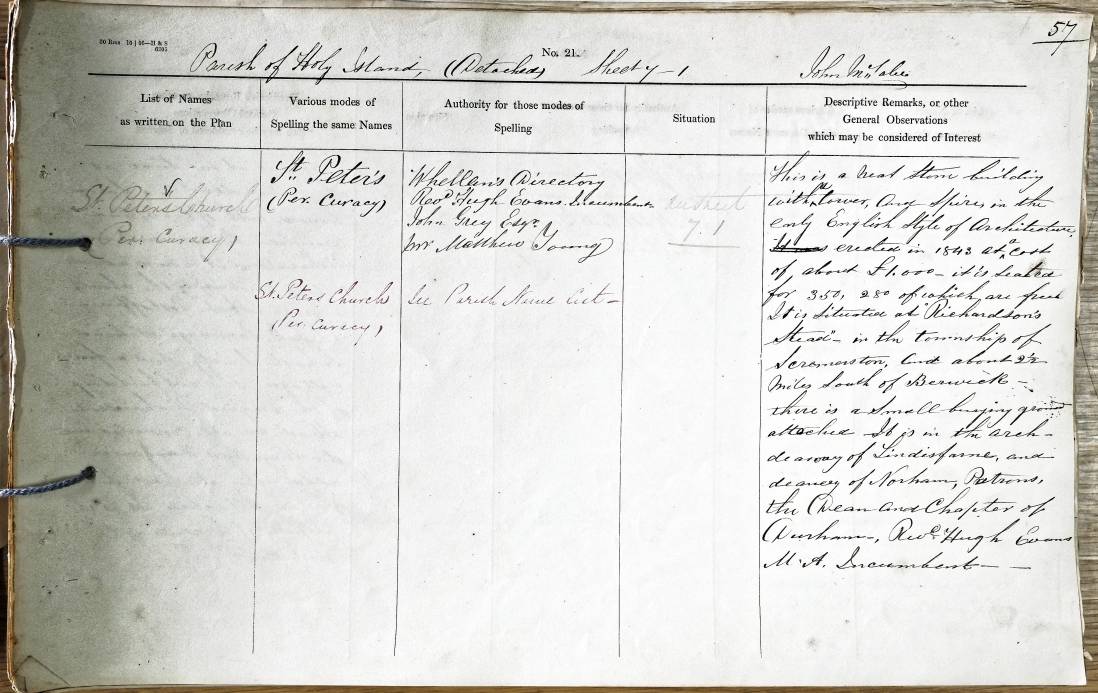 57
No. 21.
Parish of Holy Island, (Detached) Sheet 7-1
John
List of Names
as written on the Plan
Various modes of
Spelling the same Names
Authority for those modes of
Spelling
Situation
Descriptive Remarks, or other
General Observations
which may be considered of Interest
St. Peter's Church
(Per. Curacy)
St. Peter's
(Per. Curacy)
St. Peters Church
(Per. Curacy)
Whellan's Directory
Revd. Hugh Evans. Incumbent
John Grey Esqr.
Mr. Matthew Young
See Parish Name List -
7.1
This is a neat Stone building
with a tower, and Spires in the
early English Style of Architecture.
erected in 1843 at a cost
of about £1,000 - it is seated
for 350, 280 of which are free
It is Situated at "Richardson's
Stead" - in the township of
Scremerston, and about 2½
Miles South of Berwick -
there is a Small burying ground
attached - It is in the arch-
deaconry of Lindisfarne, and
deanery of Norham, Patrons,
the Dean and Chapter of
Durham -, Revd. Hugh Evans
M.A. Incumbent - -